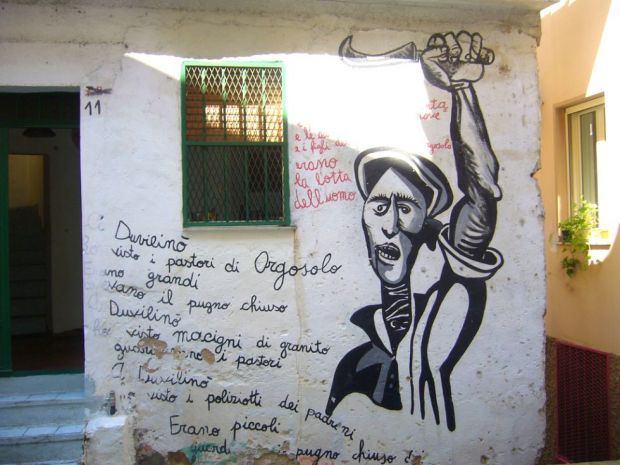 11
e i figli di
erano
la lotta
dell'uomo
Duvilinò
visto i pastori di Orgosolo
grandi
il pugno chiuso
Duvilinò
visto macigni di granito
i pastori
Duvilinò
visto i poliziotti dei padroni
Erano piccoli
pugno chiuso